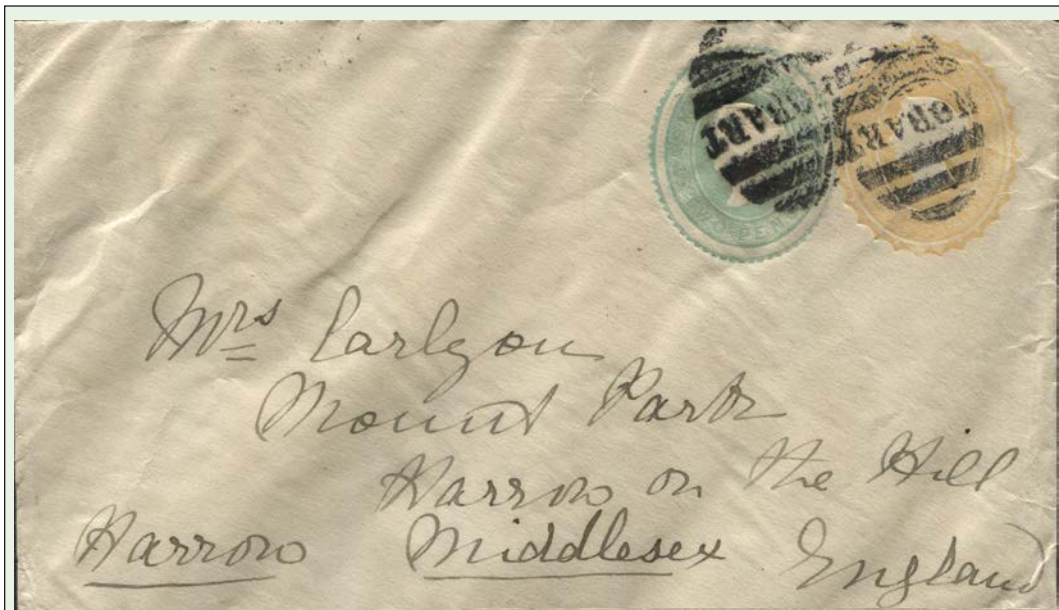 HOBART
HOBART
TWO PEN
Mrs Carlyon
Mount Park
Harrow on the Hill
Harrow Middlesex England